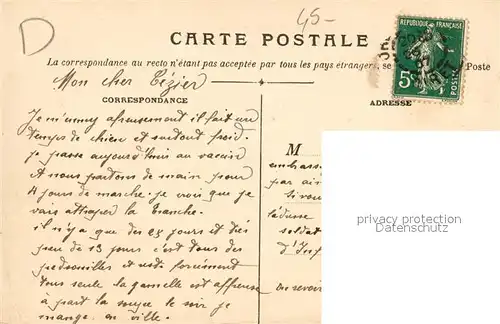 D
45-
CARTE POSTALE
RÉPUBLIQUE FRANÇAISE
5c
POSTES
La correspondance au recto n'étant pas acceptée par tous les pays étrangers, se Poste
Mon cher Tézier
CORRESPONDANCE
ADRESSE
Je m'ennuy afreusement il fait un
temps de chien et surtout froid.
je passe aujourd'hui au vaccin
et nous partons de main pour
4 jours de marche. je crois que je
vais attraper la
il n'y a que des 25 jours et très
peu de 13 jours c'est tous des
et
tous seule la gamelle est affreuse
à part la soupe le soir je
mange en ville.
M
embrass
par ai
soldat
d'Inf
au revoir
privacy protection
Datenschutz